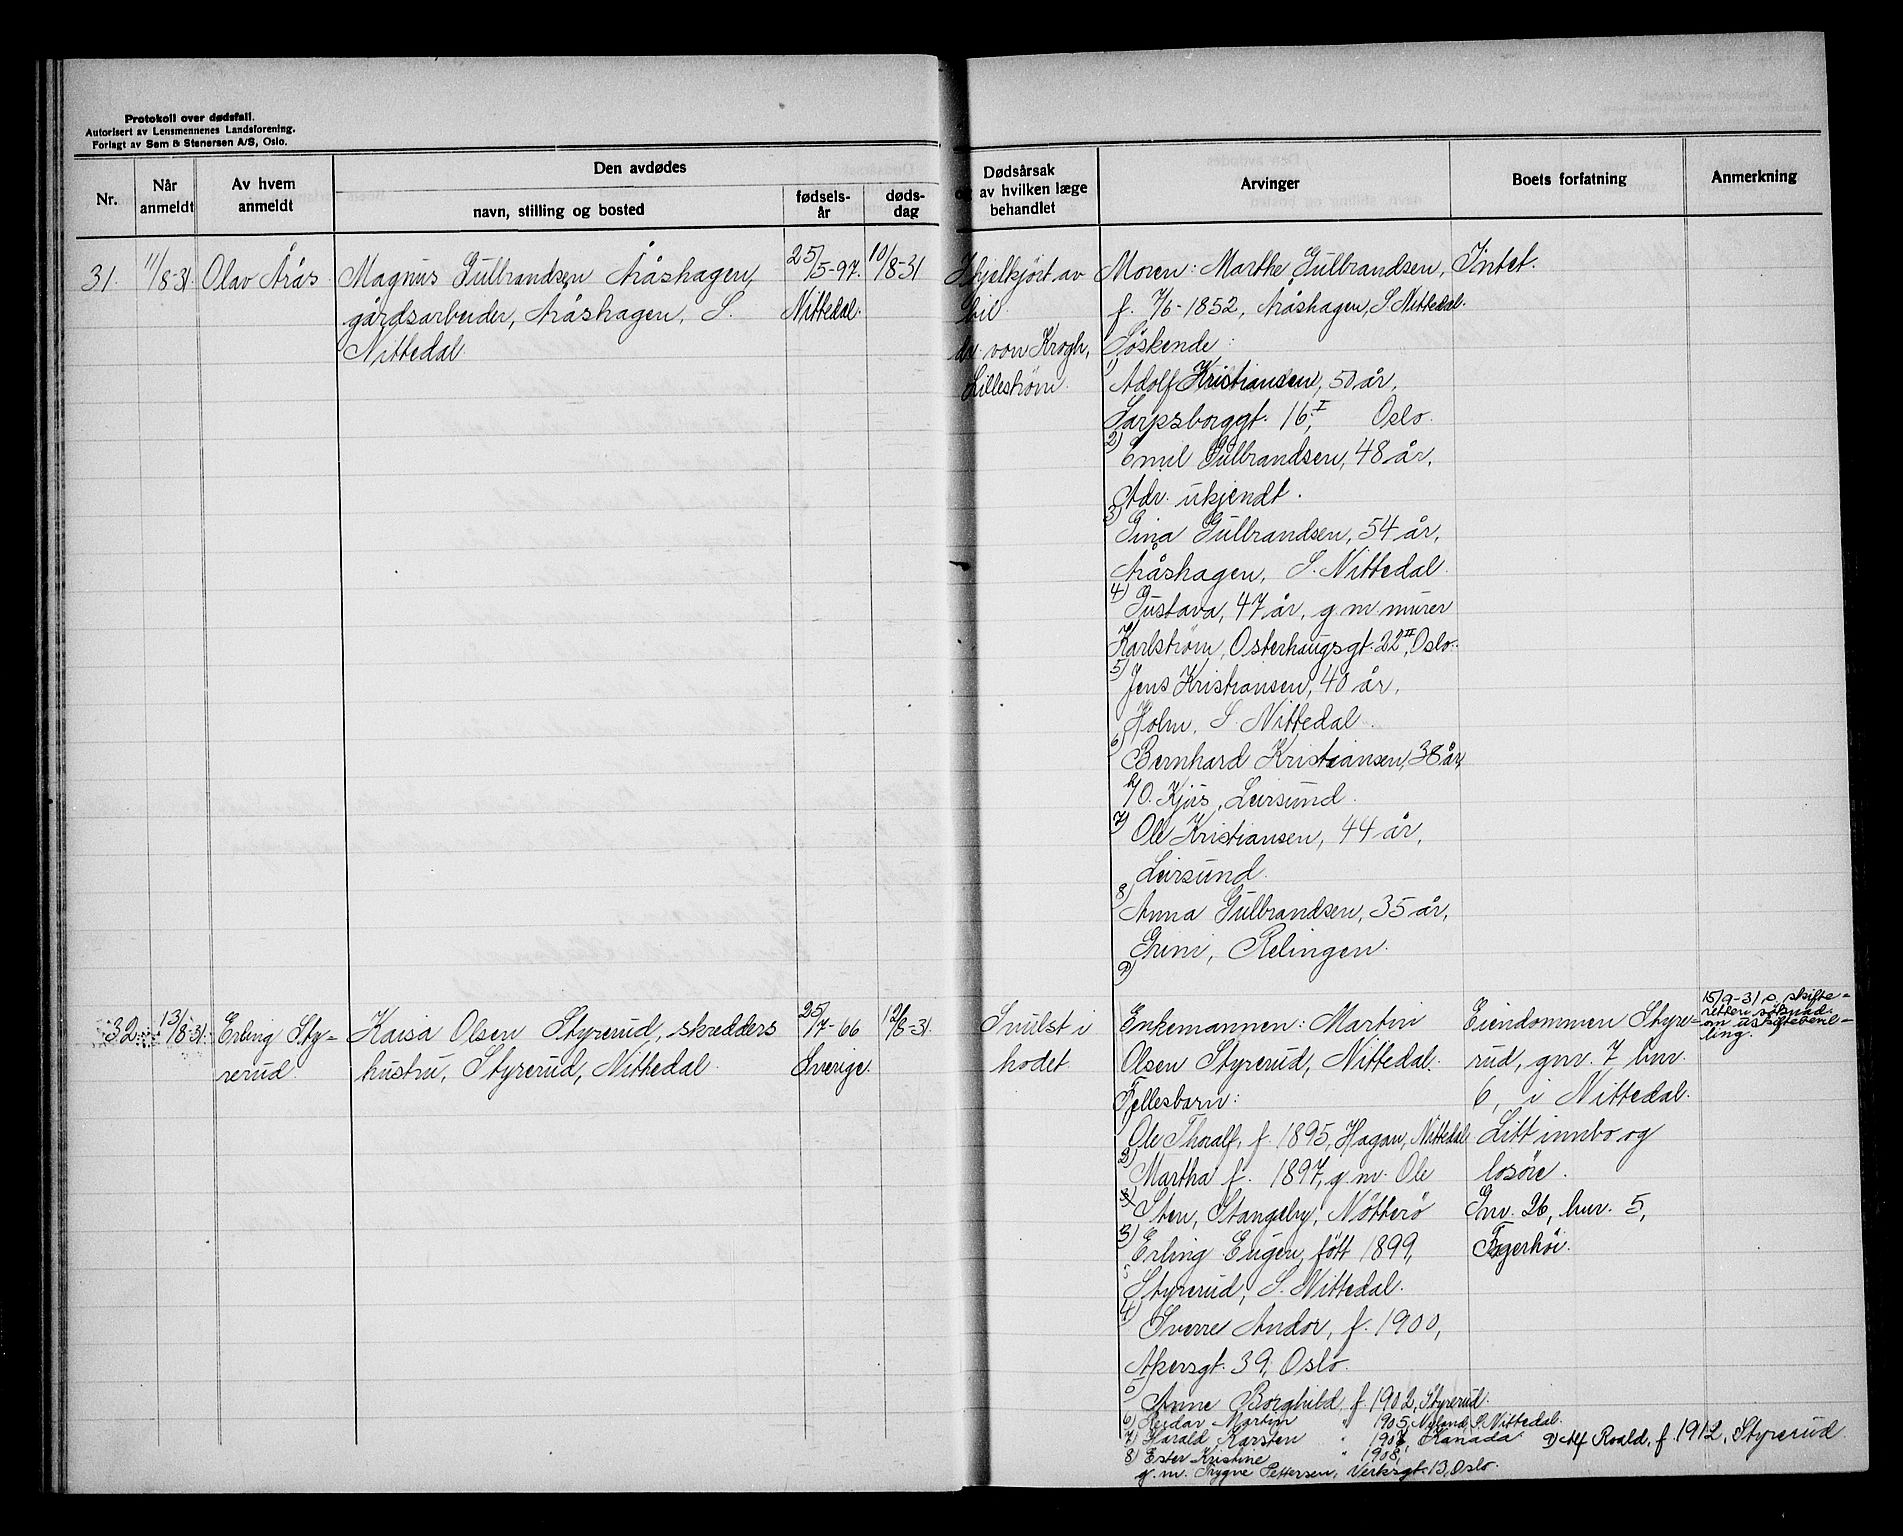 Protokoll over dødsfall.
Autorisert av Lensmennenes Landsforening.
Forlagt av Sem & Stenersen A/S, Oslo.
Nr.
Når
anmeldt
Av hvem
anmeldt
Den avdødes
navn, stilling og bosted
fødsels-
år
døds-
dag
Dødsårsak
og av hvilken læge
behandlet
Arvinger
Boets forfatning
Anmerkning
31.
11/8-31
Olav Årås
Magnus Gulbrandsen Aråshagen,
gårdsarbeider, Aråshagen, S.
Nittedal
25/5-97.
Nittedal.
10/8-31
Ihjelkjørt av
bil.
dr. von Krogh,
Lillestrøm.
Moren: Marthe Gulbrandsen,
f. 7/6-1852, Aråshagen, S. Nittedal.
Søskende:
1) Adolf Kristiansen, 50 år,
Sarpsborggt. 16, I Oslo.
2) Emil Gulbrandsen, 48 år,
Adr. ukjendt.
3) Gina Gulbrandsen, 54 år,
Aråshagen, S. Nittedal.
4) Gustava, 47 år, g m murer
Karlstrøm, Osterhaugsgt. 22 II, Oslo.
5) Jens Kristiansen, 40 år,
Holm, S. Nittedal.
6) Bernhard Kristiansen, 38 år,
O. Kjus, Leirsund.
7) Ole Kristiansen, 44 år,
Leirsund.
8) Anna Gulbrandsen, 35 år,
Grini, Relingen.
9)
Intet.
32.
13/8-31.
Erling Sty-
rerud.
Kaisa Olsen Styrerud, skredders
hustru, Styrerud, Nittedal.
25/7-66
Sverige.
12/8-31.
Svulst i
hodet
Enkemannen: Martin
Olsen Styrerud, Nittedal.
Fellesbarn:
1) Ole Thoralf, f. 1895, Hagan, Nittedal
2) Martha f. 1897, g m Ole
3) Sten, Stangeby, Nøtterö
3) Erling Eugen, født 1899,
Styrerud, S. Nittedal.
4) Sverre Andor, f. 1900,
Akersgt. 39, Oslo.
5) Anne Borghild, f. 1902, Styrerud.
6) Reidar Martin " 1905, Nyland, S. Nittedal.
7) Harald Karsten " 1907, Kanada 9) Alf Roald, f. 1912, Styrerud
8) Ester Kristine " 1908,
g. m. Trygve Pettersen, Verksgt. 13, Oslo.
Eiendommen Styre-
rud, gnr. 7, bnr.
6, i Nittedal.
Litt innbo og
losøre.
Gnr. 26, bnr. 5,
Fagerhöi.
15/9-31 s. skifte-
retten søknad
om uskiftebevil-
ling.